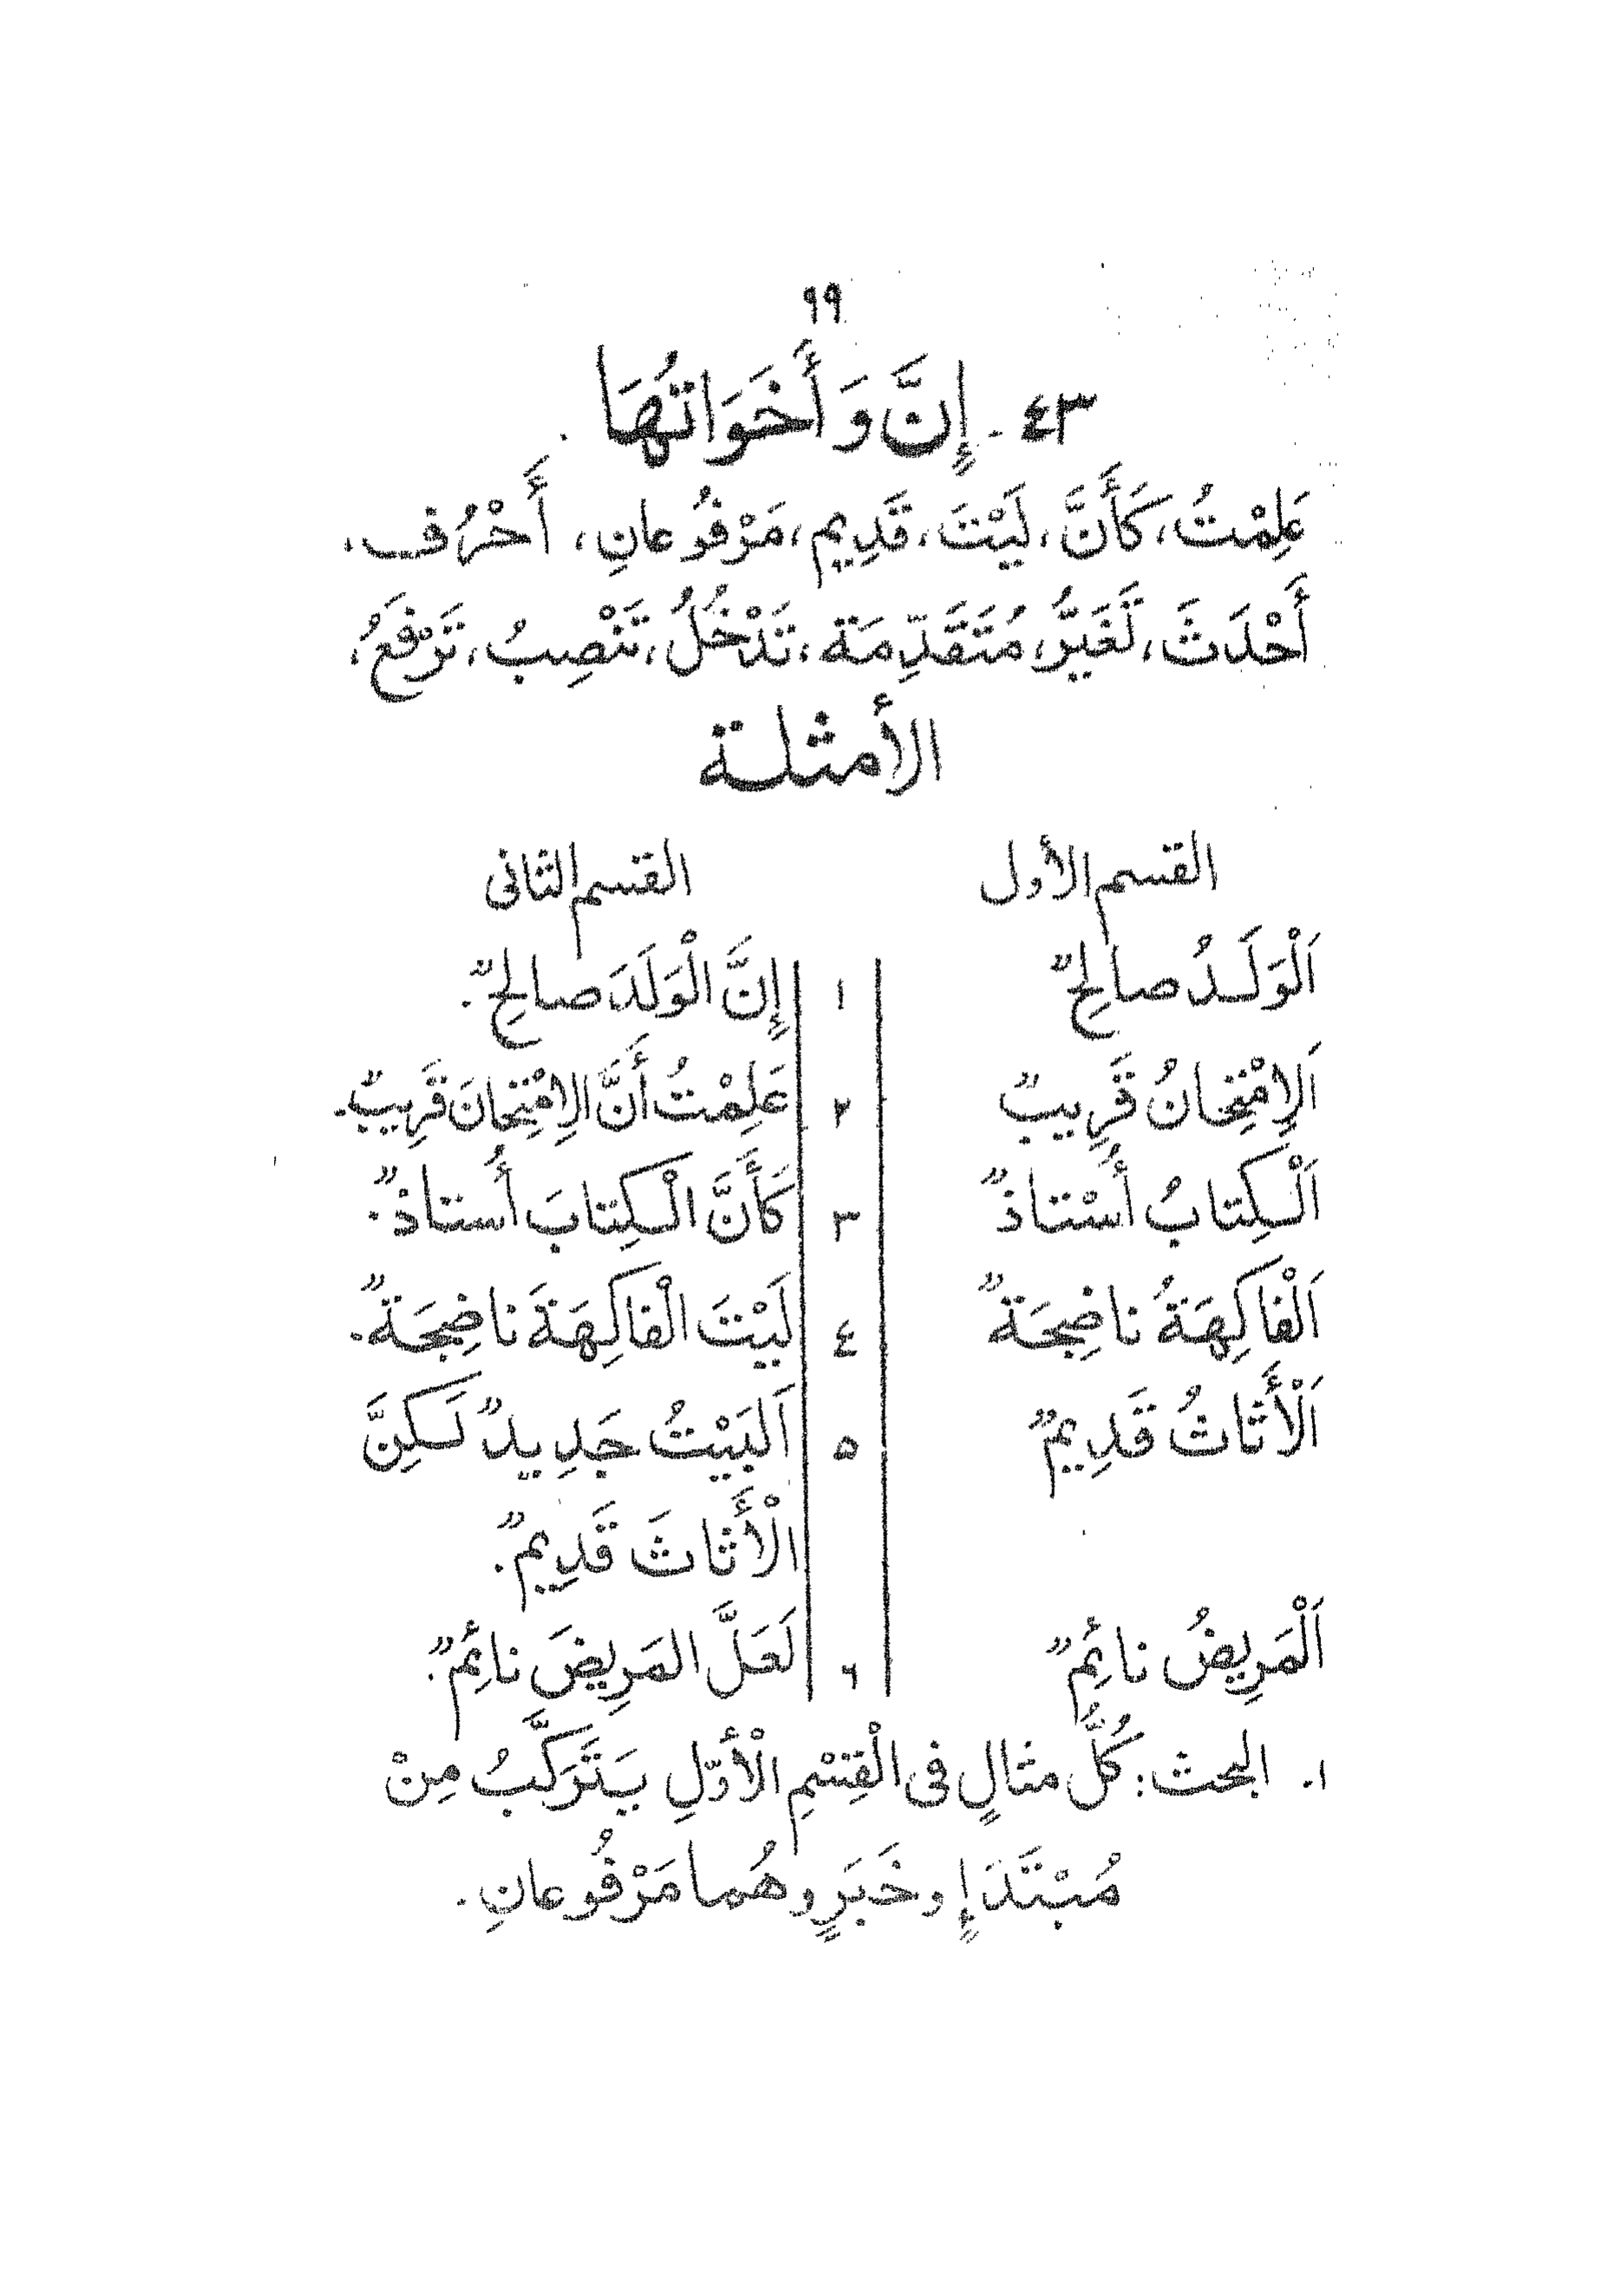 ٩٩
٤٣ - إِنَّ وَ أَخَوَاتُهَا .
عَلِمْتُ، كَأَنَّ، لَيْتَ، قَدِيم، مَرْفُوعانِ، أَحْرُف.
أَحْدَثَ، تَغَيَّرُ، مُتَقَدِّمَة، تَدْخُلُ، تَنْصِبُ، تَرْفَعُ،
الأمثلة
القسم الأول القسم الثانى
اَلْوَلَدُ صالِحٌ ١ إِنَّ الْوَلَدَ صالِحٌ.
اَلاِمْتِحَانُ قَرِيبٌ ٢ عَلِمْتُ أَنَّ الاِمْتِحَانَ قَرِيبٌ.
اَلْكِتابُ أُسْتاذٌ ٣ كَأَنَّ الْكِتابَ أُستاذٌ.
اَلْفاكِهَةُ ناضِجَةٌ ٤ لَيْتَ الْفاكِهَةَ ناضِجَةٌ.
اَلْأَثاثُ قَدِيمٌ ٥ اَلبَيْتُ جَدِيدٌ لَكِنَّ
الْأَثاثَ قَدِيمٌ.
اَلْمَرِيضُ نائِمٌ ٦ لَعَلَّ المَرِيضَ نائِمٌ.
١. البحث: كُلُّ مثالٍ فى الْقِسْمِ الْأَوّلِ يَتَرَكَّبُ مِنْ
مُبْتَدَإٍ و خَبَرٍ و هُما مَرْفُوعانِ.